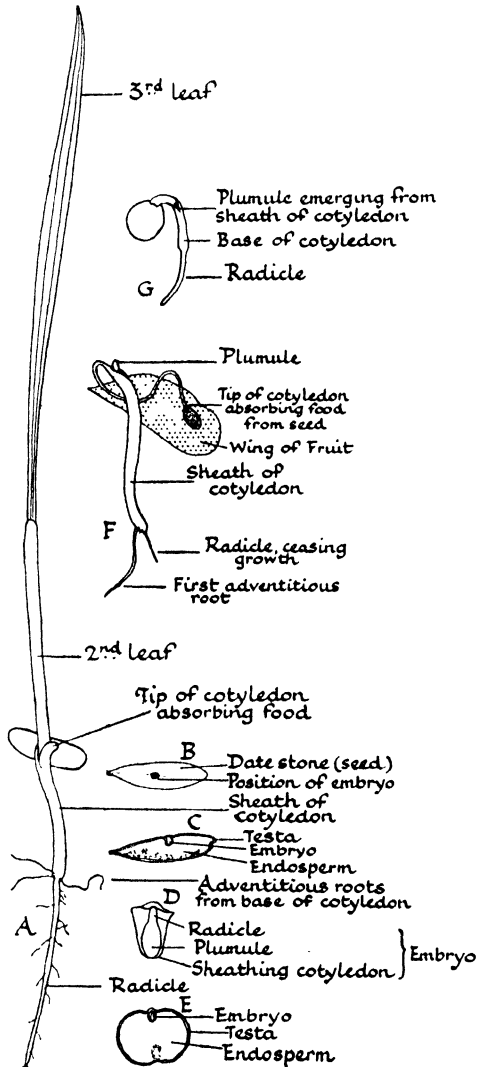 3rd leaf
Plumule emerging from
sheath of cotyledon
Base of cotyledon
Radicle
G
Plumule
Tip of cotyledon
absorbing food
from seed
Wing of Fruit
Sheath of
cotyledon
F
Radicle, ceasing
growth
First adventitious
root
2nd leaf
Tip of cotyledon
absorbing food
B
Date stone (seed)
Position of embryo
Sheath of
cotyledon
C
Testa
Embryo
Endosperm
Adventitious roots
from base of cotyledon
D
A
Radicle
Plumule
Sheathing cotyledon
Embryo
Radicle
E
Embryo
Testa
Endosperm